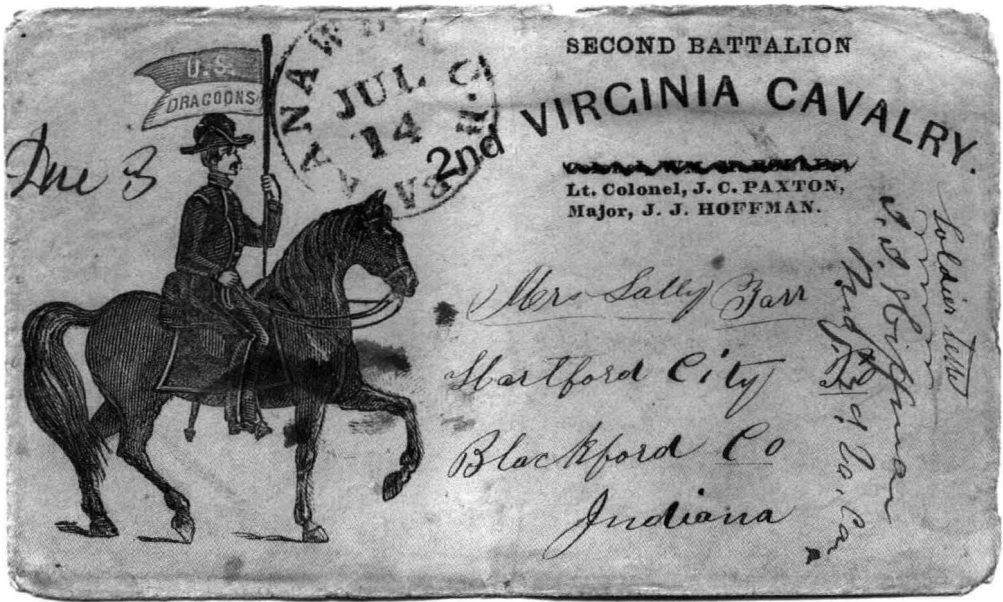 U.S.
DRAGOONS
KANAWHA C.H.
VA
JUL
14
Due 3
SECOND BATTALION
2nd VIRGINIA CAVALRY.
Lt. Colonel, J. C. PAXTON,
Major, J. J. HOFFMAN.
Mrs Sally Farr
Hartford City
Blackford Co
Indiana
Soldiers letter
J. J. Hoffman
Maj. 2d Va. Cav